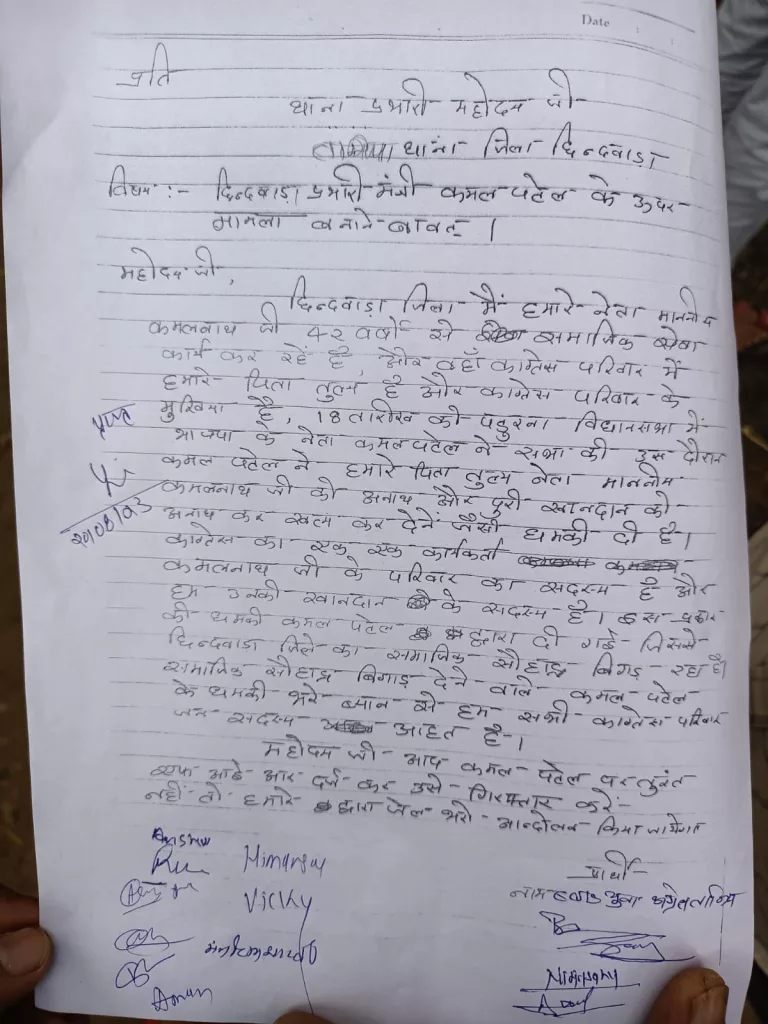 Date : :
प्रति
थाना प्रभारी महोदय जी
तामिया थाना जिला छिन्दवाड़ा
विषय :- छिन्दवाड़ा प्रभारी मंत्री कमल पटेल के ऊपर
मामला बनाने बावत् ।
महोदय जी,
छिन्दवाड़ा जिला में हमारे नेता माननीय
कमलनाथ जी 42 वर्षो से समाजिक सेवा
कार्य कर रहें है, और वहाँ कांग्रेस परिवार में
हमारे पिता तुल्य है और कांग्रेस परिवार के
मुखिया है, 18 तारीख को पंढुरना विधानसभा में
भाजपा के नेता कमल पटेल ने सभा की उस दौरान
कमल पटेल ने हमारे पिता तुल्य नेता माननीय
कमलनाथ जी को अनाथ और पुरी खानदान को
अनाथ कर खत्म कर देनें जैसी धमकी दी है।
20/08/23
कांग्रेस का एक एक कार्यकर्ता
कमलनाथ जी के परिवार का सदस्य है और
हम उनकी खानदान के सदस्य है। इस प्रकार
की धमकी कमल पटेल द्वारा दी गई जिससे
छिन्दवाड़ा जिले का समाजिक सौहाद्र बिगड़ रहा है।
समाजिक सौहाद्र बिगाड़ देने वाले कमल पटेल
के धमकी भरे ब्यान से हम सभी कांग्रेस परिवार
जन सदस्य आहत है।
महोदय जी आप कमल पटेल पर तुरंत
एफ आई आर दर्ज कर उसे गिरफ्तार करे
नहीं तो हमारे द्वारा जेल भरो आन्दोलन किया जायेगा
प्रार्थी
Himanshu
Vicky
Aman